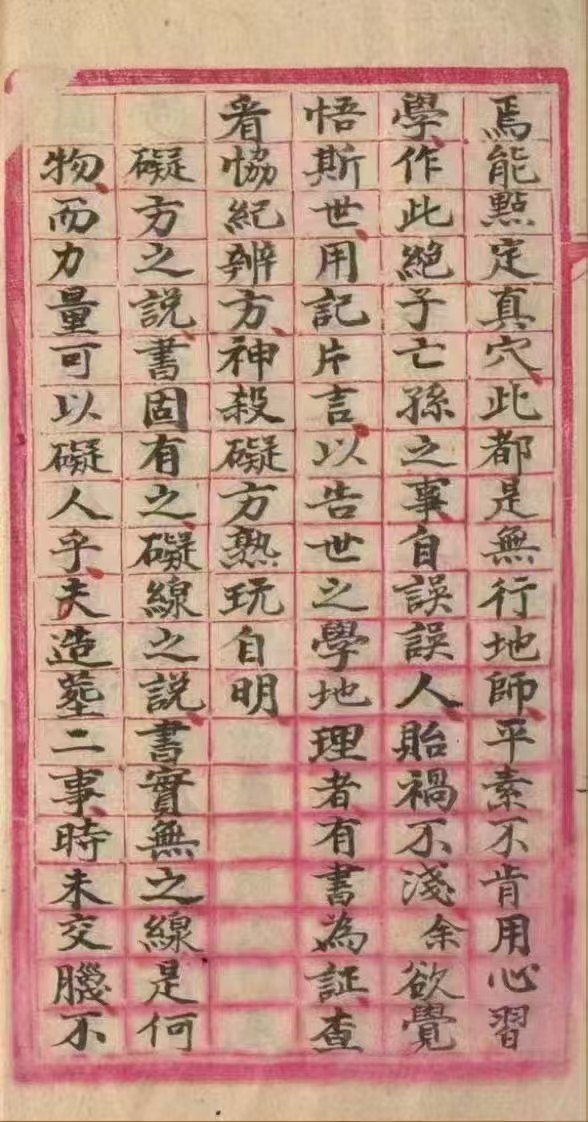 焉能點定真穴此都是無行地師平素不肯用心習
學作此絕子亡孫之事自誤誤人貽禍不淺余欲覺
悟斯世用記片言以告世之學地理者有書為証查
看恊紀辨方神殺礙方熟玩自明
礙方之說書固有之礙線之說書實無之線是何
物而力量可以礙人乎夫造塟二事時未交臘不